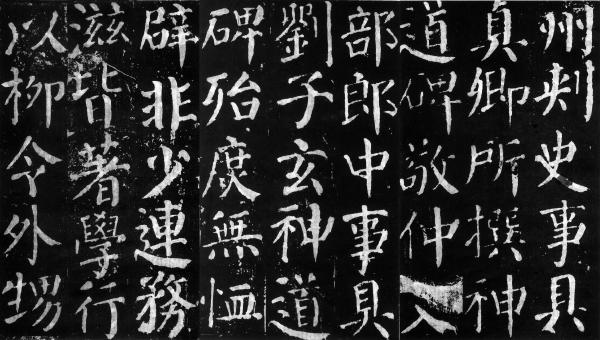 州刾史事具
真卿所撰神
道碑敬仲
部郎中事具
劉子玄神道
碑殆庶無恤
辟非少連務
滋皆著學行
以柳令外甥